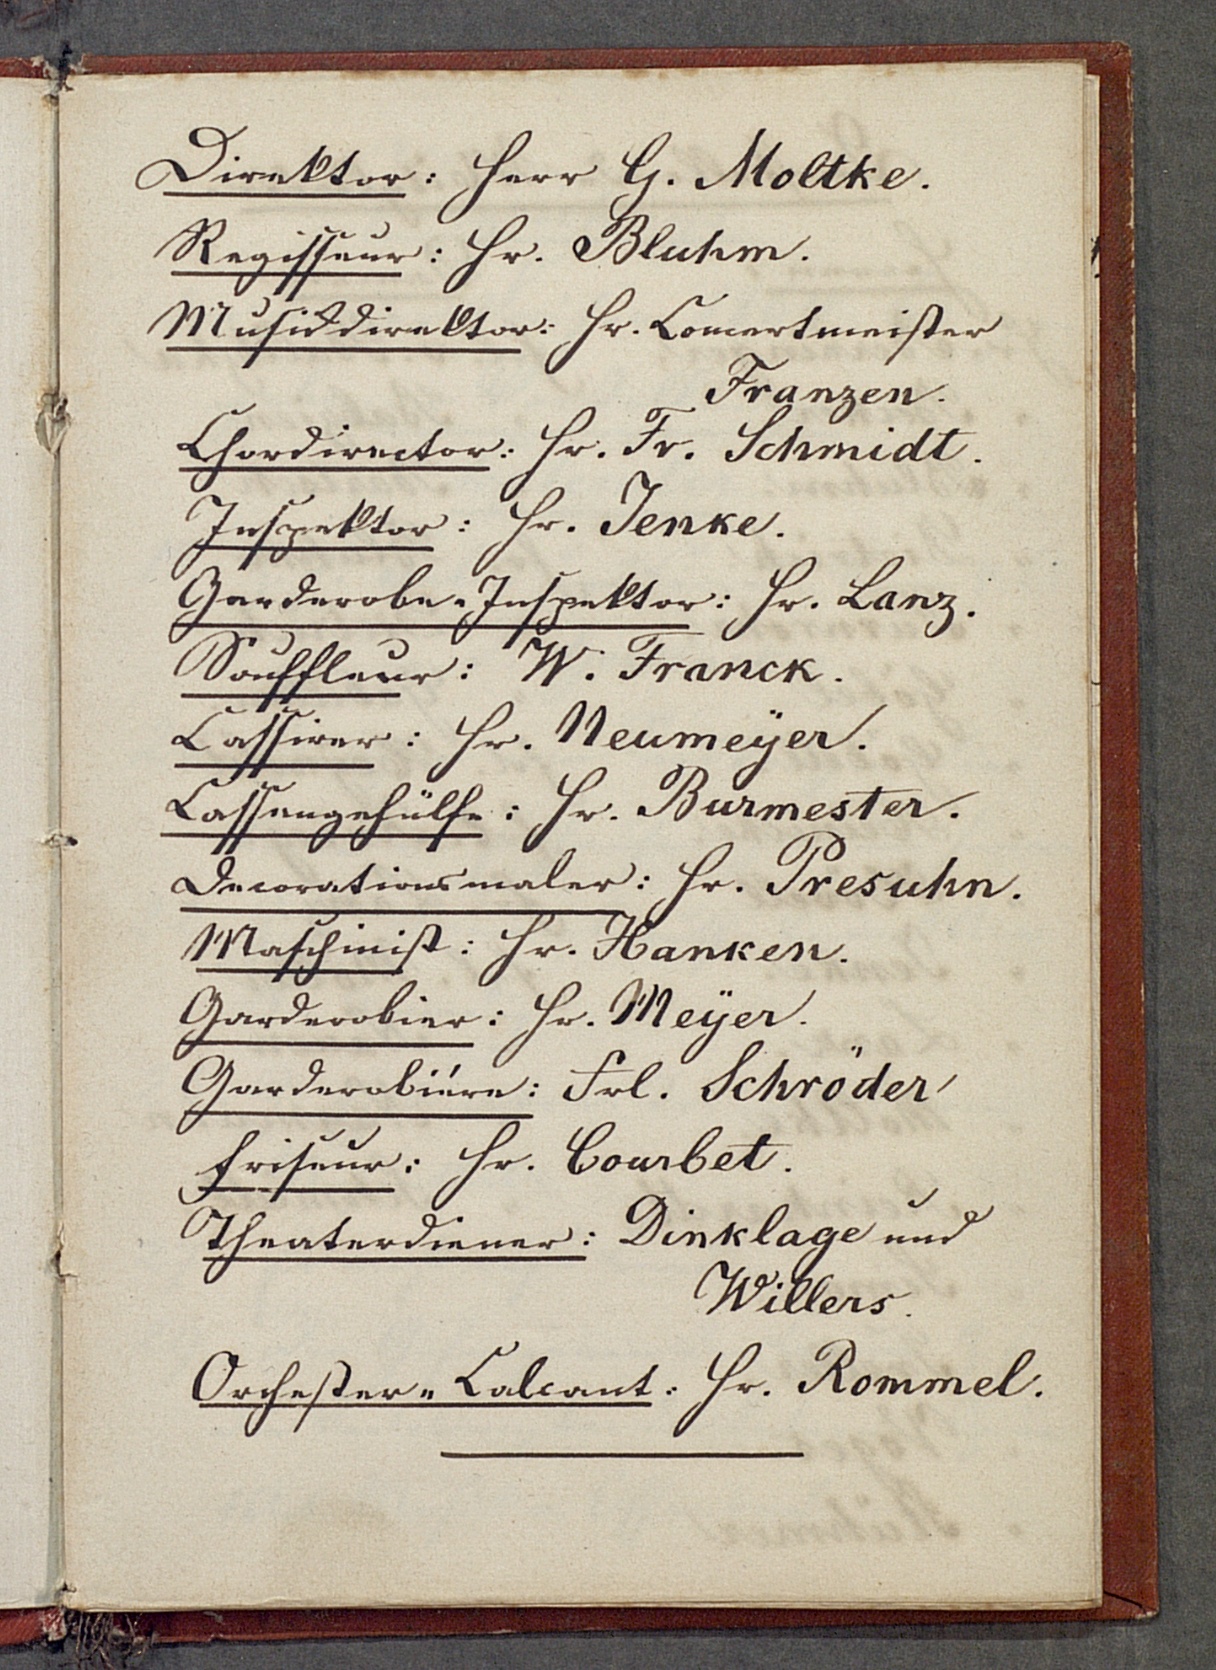 Direktor: Herr G. Moltke.
Regisseur: Hr. Bluhm.
Musikdirektor: Hr. Concertmeister
Franzen.
Chordirector: Hr. Fr. Schmidt.
Inspektor: Hr. Jenke.
Garderobe-Inspektor: Hr. Lanz.
Souffleur: W. Franck.
Cassirer: Hr. Neumeÿer.
Cassengehülfe: Hr. Burmester.
Decorationsmaler: Hr. Presuhn.
Maschinist: Hr. Hanken.
Garderobier: Hr. Meÿer.
Garderobiére: Frl. Schröder
Friseur: Hr. Courbet.
Theaterdiener: Dinklage und
Willers.
Orchester-Calcant: Hr. Rommel.